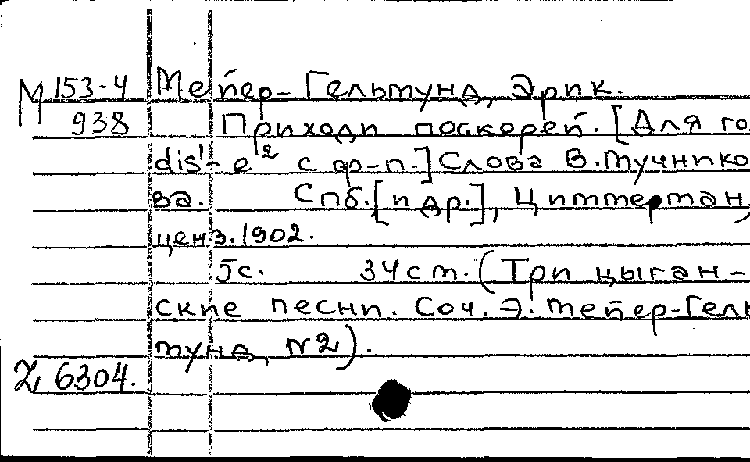 М 153-4 Мейер-Гельмунд, Эрик.
938 Приходи поскорей. [Для го
dis¹-e² с ф-п.] Слова В. Мучнико
ва. Спб. [и др.], Циммерман,
ценз. 1902.
5с. 34 cm. (Три цыган-
ские песни. Соч. Э. Мейер-Гель
мунд, №2).
Z 6304.